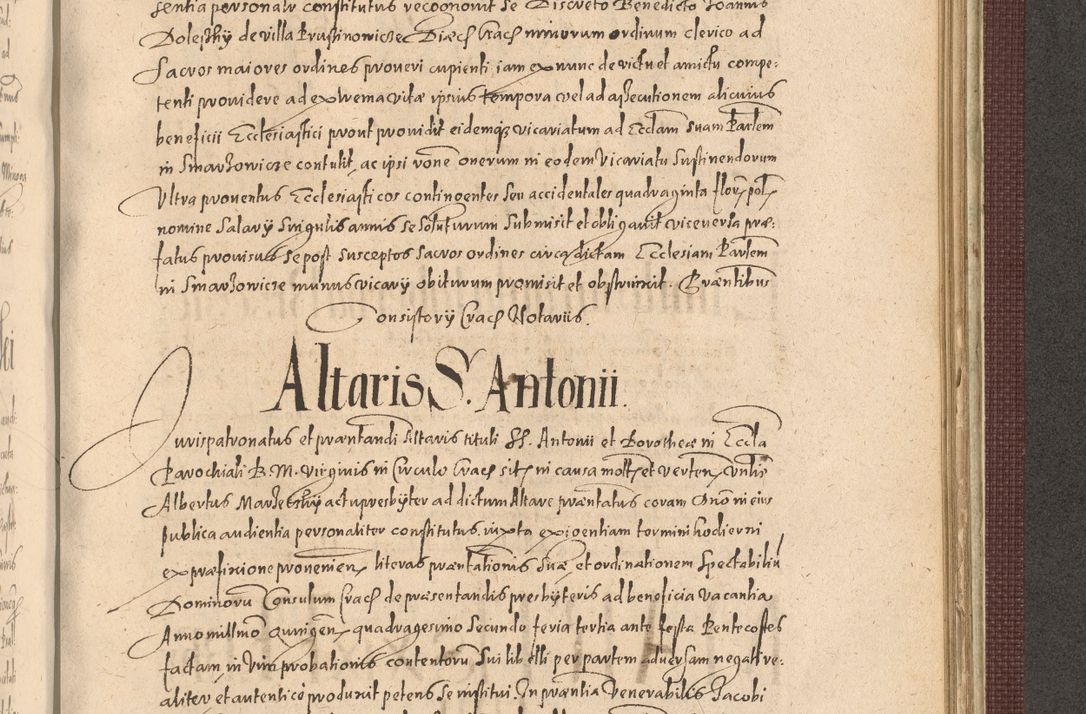 sentia personalr constitutus recognouit se Discreto Benedicto Joannis
Doleszky de villa Krustinowicze Diæc Crac minorum ordinum clerico ad
sacros maiores ordines proueri cupienti, iam ex nunc de victu et amictu compe:
tenti prouidere ad extrema vitæ ipsius tempora vel ad assecutionem alicuius
beneficii Ecclesiastici prout prouidit eidemq vicariatum ad Ecclam suam Parlem
in Smarzowicze contulit, ac ipsi rone onerum in eodem Vicariatu sustinendorum
Vltra prouentus Ecclesiasticos contingentes seu accidentales quadraginta flor pol
nomine salary singulis annis se soluturum submisit et obligauit viceversa præ:
fatus prouisus se post susceptos sacros ordines circa dictam Ecclesiam Parlem
in Smarzowicze munus vicary obiturum promisit et obstrinxit. Præntibus
Consistory Crac Notariis.
Altaris S. Antonii.
Jurispatronatus et præntandi Altaris tituli SS. Antonii et Dorotheæ in Eccla
Parochiali B. M. Virginis in Circulo Crac sit in causa mot et verten, Vnlis
Albertus Marzesky actu presbyter ad dictum Altare præntatus coram Dno in eius
publica audientia personaliter constitutus, iuxta exigentiam termini hodierni
ex præfixione prouenien literas præntationis suæ, et ordinationem Spectabiliũ
Dominorũ Consulum Crac de præsentandis presbyteris ad beneficia vacantia
Anno millmo quingen quadragesimo secundo feria tertia ante festa Pentecostes
factam in vim probationis contentorũ sui libelli per partem aduersam negatiue:
aliter et autentice produxit petens se institui. In præntia Venerabilis Jacobi